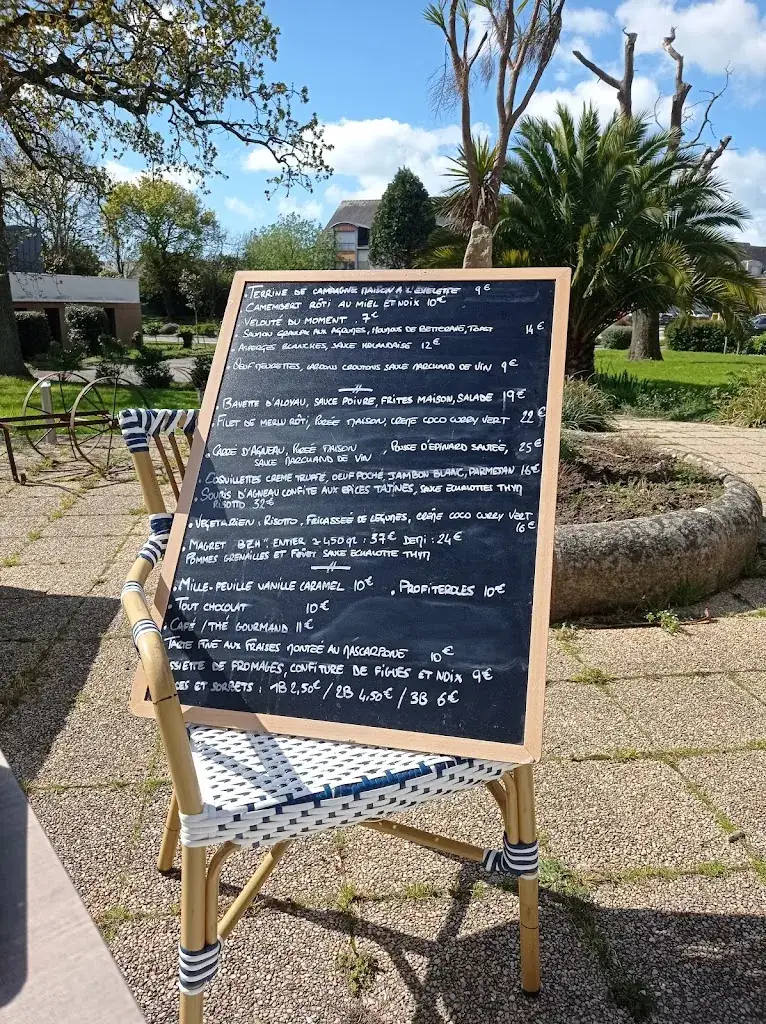 Terrine de campagne maison a l'Echelotte 9€
Camembert rôti au miel et noix 10€
Velouté du moment 7€
Saumon Gravlax aux agrumes, Houmous de Betterave, Toast 14€
Asperges blanches, sauce Hollandaise 12€
Oeuf meurettes, lardons croutons sauce marchand de vin 9€
• Bavette d'Aloyau, sauce poivre, frites maison, salade 19€
• Filet de merlu rôti, Purée maison, crème coco curry vert 22€
• Carre d'Agneau, Purée maison , Pousse d'épinard sautée, 25€
sauce marchand de vin
• Coquillettes creme truffé, oeuf poché, jambon blanc, parmesan 16€
• Souris d'agneau confite aux epices tajines, sauce echalottes thym
Risotto 32€
• Végétarien : Risotto, fricassée de légumes, crème coco curry vert
16€
• Magret "BZH" entier ≃ 450gr : 37€ Demi : 24€
Pommes grenailles et forêt sauce echalotte thym
• Mille-feuille vanille caramel 10€ • Profiteroles 10€
• Tout chocolat 10€
• Café / thé gourmand 11€
Tarte fine aux fraises montée au mascarpone 10€
ssiette de fromages, confiture de figues et noix 9€
ces et sorbets : 1B 2,50€ / 2B 4,50€ / 3B 6€